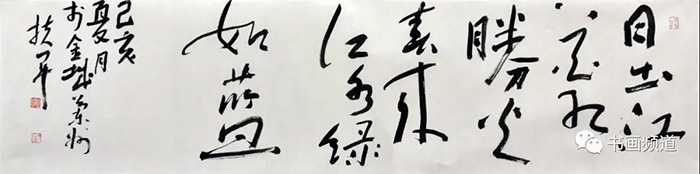 日出江
花红
胜火
春来
江水绿
如蓝
己亥
夏月
于金城兰州
书画频道